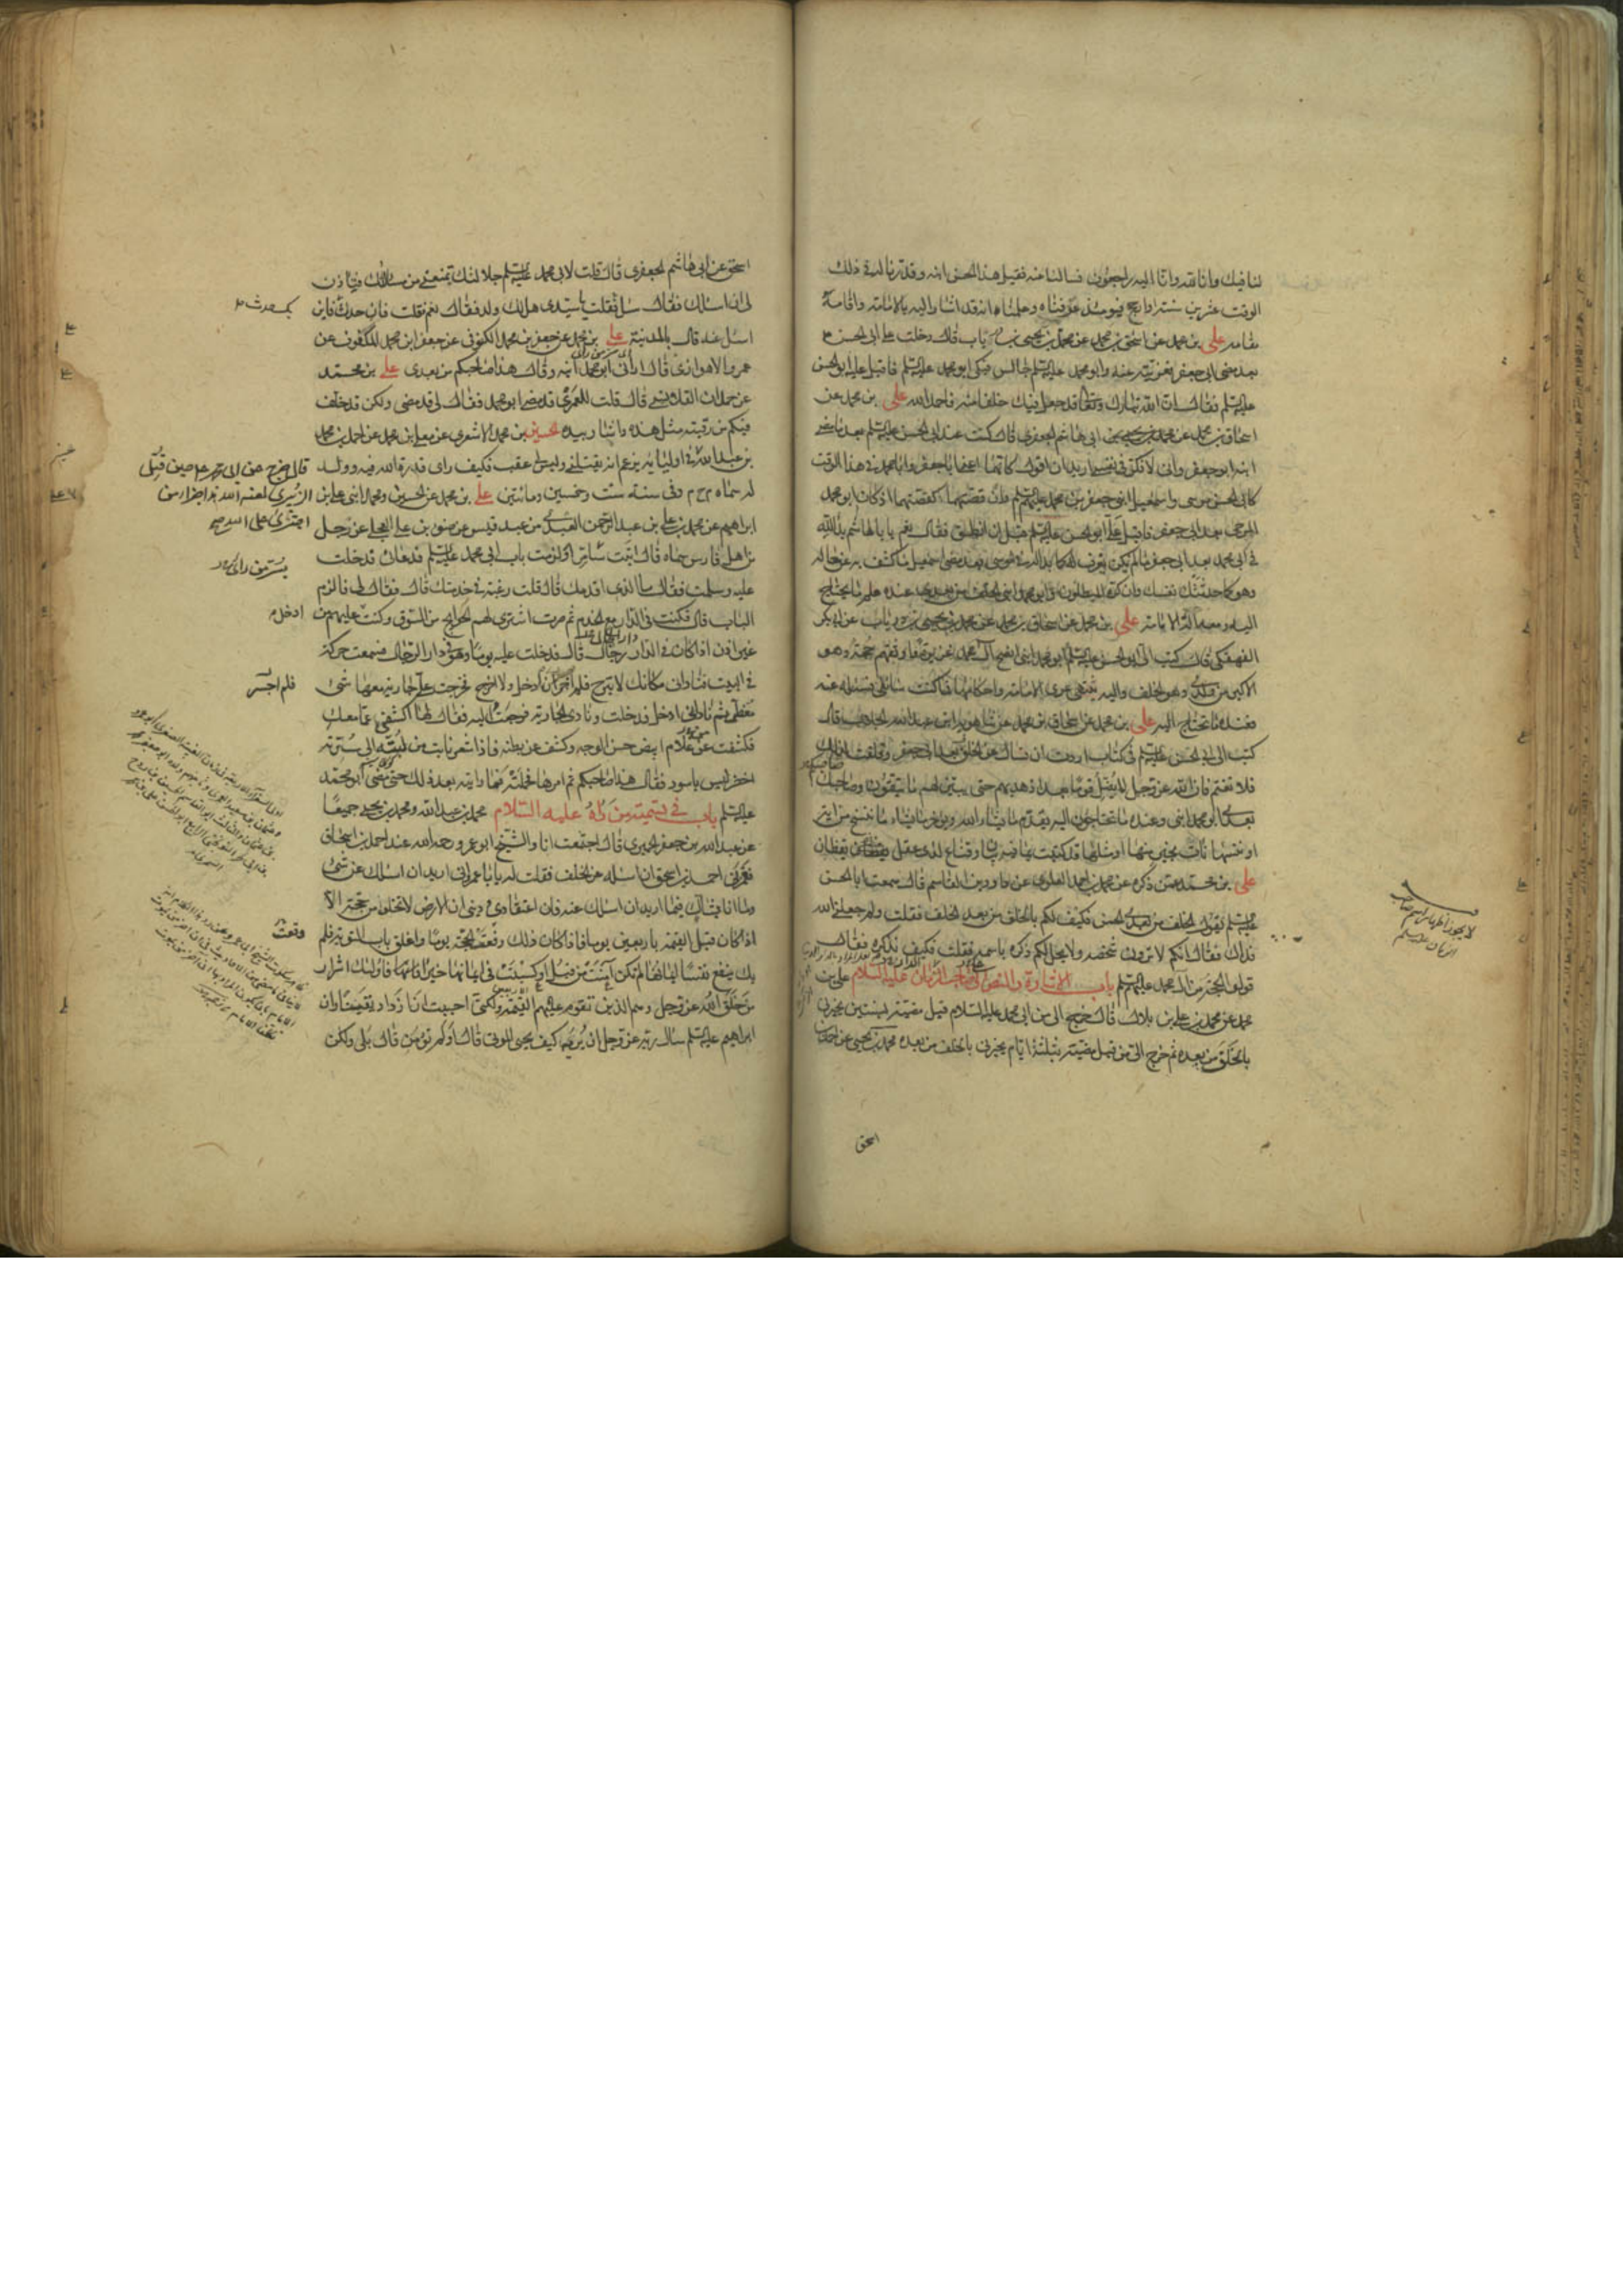 لنا فيك وانا لله وانا اليه راجعون فسالنا عنه فقيل هذا الحسن ابنه وقدرنا له في ذلك
الوقت عشرين سنة او ارجح فيومئذ عرفناه وعلمنا انه قد اشار اليه بالامامة واقامه
مقامه علي بن محمد عن اسحق بن محمد عن محمد بن يحيى بن درياب قال دخلت على ابي الحسن ع
بعد مضي ابي جعفر فعزيته عنه وابو محمد عليه السلم جالس فبكى ابو محمد عليه السلم فاقبل عليه ابو الحسن
عليه السلم فقال ان الله تبارك وتعالى قد جعل فيك خلفا منه فاحمد الله علي بن محمد عن
اسحاق بن محمد عن محمد بن يحيى بن ابي هاشم الجعفري قال كنت عند ابي الحسن عليه السلم بعد ما مضى
ابنه ابو جعفر واني لافكر في نفسي اريد ان اقول كانهما اعني ابا جعفر وابا محمد في هذا الوقت
كابي الحسن موسى واسمعيل ابني جعفر بن محمد عليهم السلم وان قصتهما كقصتهما اذ كان ابو محمد
المرجى بعد ابي جعفر فاقبل علي ابو الحسن عليه السلم قبل ان انطق فقال نعم يا ابا هاشم بدا لله
في ابي محمد بعد ابي جعفر ما لم يكن يعرف له كما بدا له في موسى بعد مضي اسمعيل ما كشف به عن حاله
وهو كما حدثتك نفسك وان كره المبطلون وابو محمد ابني الخلف من بعدي عنده علم ما يحتاج
اليه ومعه آلة الامامة علي بن محمد عن اسحاق بن محمد عن محمد بن يحيى بن درياب عن ابي بكر
الفهفكي قال كتب الي ابو الحسن عليه السلم ابو محمد ابني انصح آل محمد غريزة واوثقهم حجة وهو
الاكبر من ولدي وهو الخلف واليه ينتهي عرى الامامة واحكامها فما كنت سائلي فسله عنه
فعنده ما تحتاج اليه علي بن محمد عن اسحاق بن محمد عن شاهويه ابن عبد الله الجلاب قال
كتب الي ابو الحسن عليه السلم في كتاب اردت ان تسال عن الخلف بعد ابي جعفر وقلقت لذلك
فلا تغتم فان الله عز وجل لا يضل قوما بعد اذ هديهم حتى يبين لهم ما يتقون وصاحبك
بعدي ابو محمد ابني وعنده ما تحتاجون اليه يقدم ما يشاء الله ويؤخر ما يشاء ما ننسخ من آية
او ننسها نات بخير منها او مثلها قد كتبت بما فيه بيان وقناع لذي عقل يقظان
علي بن محمد عمن ذكره عن محمد بن احمد العلوي عن داود بن القاسم قال سمعت ابا الحسن
عليه السلم يقول الخلف من بعدي الحسن فكيف لكم بالخلف من بعد الخلف فقلت ولم جعلني الله
فداك فقال انكم لا ترون شخصه ولا يحل لكم ذكره باسمه فقلت فكيف نذكره فقال
قولوا الحجة من آل محمد عليهم السلم باب الاشارة والنص الى صاحب الزمان عليه السلام علي بن
محمد عن محمد بن علي بن بلال قال خرج الي من ابي محمد عليه السلام قبل مضيه بسنتين يخبرني
بالخلف من بعده ثم خرج الي من قبل مضيه بثلثة ايام يخبرني بالخلف من بعده محمد بن يحيى عن احمد بن
اسحق
لا يجوز اظهار اسم صاحب
الزمان عليه السلم
اسحق عن ابي هاشم الجعفري قال قلت لابي محمد عليه السلم جلالتك تمنعني من مسالتك فتاذن
لي ان اسالك فقال سل فقلت يا سيدي هل لك ولد فقال نعم فقلت فان حدث فاين
اسئل عنه قال بالمدينة علي بن محمد عن جعفر بن محمد الكوفي عن جعفر ابن محمد المكفوف عن
عمرو الاهوازي قال اراني ابو محمد ابنه وقال هذا صاحبكم من بعدي علي بن محمد
عن حمدان القلانسي قال قلت للعمري قد مضى ابو محمد فقال لي قد مضى ولكن قد خلف
فيكم من رقبته مثل هذه واشار بيده الحسين بن محمد الاشعري عن معلى بن محمد عن احمد بن محمد
بن عبد الله في اوليائه يزعم انه يقتلني وليس لي عقب فكيف راى قدرة الله فيه وولد
له سماه م ح م د في سنة ست وخمسين ومائتين علي بن محمد عن الحسين ومحمد ابني علي بن
ابراهيم عن محمد بن علي بن عبد الرحمن العبدي من عبد قيس عن ضوء بن علي العجلي عن رجل
من اهل فارس سماه قال اتيت سامرا ولزمت باب ابي محمد عليه السلم فدعاني فدخلت
عليه وسلمت فقال ما الذي اقدمك قال قلت رغبة في خدمتك قال فقال لي فالزم
الباب قال فكنت في الدار مع الخدم ثم صرت اشتري لهم الحوائج من السوق وكنت عليهم من
غير اذن اذا كان في الدار رجال قال فدخلت عليه يوما وهو في دار الرجال فسمعت حركة
في البيت فناداني مكانك لا تبرح فلم ادخل ولا اخرج فخرجت علي جارية معها شيء
مغطى ثم ناداني ادخل فدخلت ونادى الجارية فرجعت اليه فقال لها اكشفي عما معك
فكشفت عن غلام ابيض حسن الوجه وكشف عن بطنه فاذا شعر نابت من لبته الى سرته
اخضر ليس باسود فقال هذا صاحبكم ثم امرها فحملته فما رايته بعد ذلك حتى مضى ابو محمد
عليه السلم باب في تسمية من راه عليه السلام محمد بن عبد الله ومحمد بن يحيى جميعا
عن عبد الله بن جعفر الحميري قال اجتمعت انا والشيخ ابو عمرو رحمه الله عند احمد بن اسحاق
فغمزني احمد بن اسحق ان اسئله عن الخلف فقلت له يا ابا عمرو اني اريد ان اسئلك عن شيء
وما انا بشاك فيما اريد ان اسئلك عنه فان اعتقادي وديني ان الارض لا تخلو من حجة الا
اذا كان قبل القيمة باربعين يوما فاذا كان ذلك رفعت الحجة يوما واغلق باب التوبة فلم
يك ينفع نفسا ايمانها لم تكن آمنت من قبل او كسبت في ايمانها خيرا فاولئك اشرار
من خلق الله عز وجل وهم الذين تقوم عليهم القيمة ولكني احببت ان ازداد يقينا وان
ابراهيم عليه السلم سال ربه عز وجل ان يريه كيف يحيي الموتى قال اولم تؤمن قال بلى ولكن
قال خرج عن ابي محمد ع حين قتل
الزبيري لعنه الله هذا جزاء من
اجترى على الله
بسر من راى
ادخل
فلم اجسر
وقعت